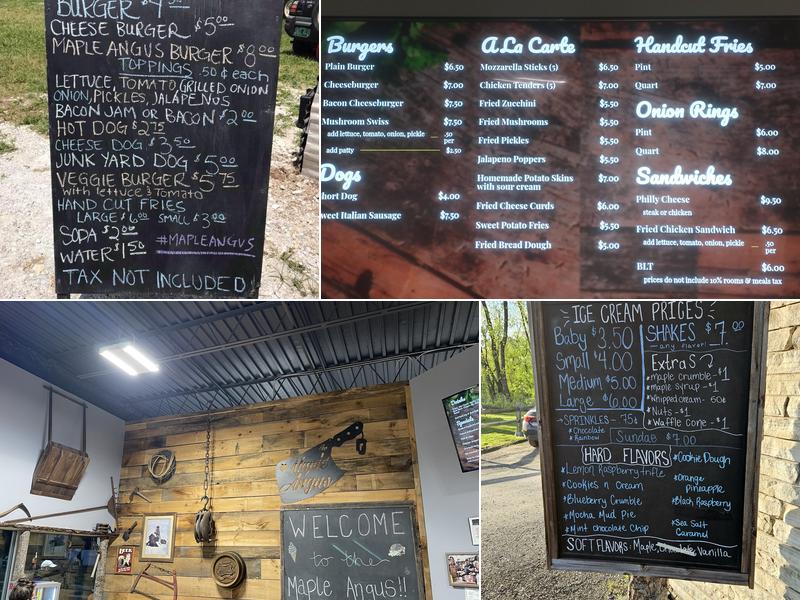 BURGER $4
CHEESE BURGER $5.00
MAPLE ANGUS BURGER $8.00
TOPPINGS .50¢ each
LETTUCE, TOMATO, GRILLED ONION
ONION, PICKLES, JALAPENOS
BACON JAM OR BACON $2.00
HOT DOG $2.75
CHEESE DOG $3.50
JUNK YARD DOG $5.00
VEGGIE BURGER $5.75
with lettuce & Tomato
HAND CUT FRIES
LARGE $6.00 SMALL $3.00
SODA $2.00
WATER $1.50
#MAPLEANGUS
TAX NOT INCLUDED
Burgers
Plain Burger $6.50
Cheeseburger $7.00
Bacon Cheeseburger $7.50
Mushroom Swiss $7.50
add lettuce, tomato, onion, pickle — .50 per
add patty $2.50
Dogs
hort Dog $4.00
weet Italian Sausage $7.50
A La Carte
Mozzarella Sticks (5) $6.50
Chicken Tenders (5) $7.00
Fried Zucchini $5.50
Fried Mushrooms $5.50
Fried Pickles $5.50
Jalapeno Poppers $5.50
Homemade Potato Skins $7.00
with sour cream
Fried Cheese Curds $6.00
Sweet Potato Fries $5.50
Fried Bread Dough $5.00
Handcut Fries
Pint $5.00
Quart $7.00
Onion Rings
Pint $6.00
Quart $8.00
Sandwiches
Philly Cheese $9.50
steak or chicken
Fried Chicken Sandwich $6.50
add lettuce, tomato, onion, pickle — .50 per
BLT $6.00
prices do not include 10% rooms & meals tax
Maple
Angus
WELCOME
to the
Maple Angus!!
Drinks
Specials
ICE CREAM PRICES
Baby $3.50
Small $4.00
Medium $5.00
Large $6.00
SHAKES $7.00
any flavor!
Extras
*Maple crumble-$1
*maple syrup-$1
*Whipped cream-50¢
*Nuts-$1
*Waffle Cone-$1
SPRINKLES-75¢
*Chocolate
*Rainbow
Sundae $7.00
HARD FLAVORS
*Lemon Raspberry trifle
*Cookies n Cream
*Blueberry Crumble
*Mocha Mud Pie
*Mint chocolate Chip
*Cookie Dough
*Orange pineapple
*Black Raspberry
*Sea Salt Caramel
SOFT FLAVORS: Maple, Chocolate Vanilla